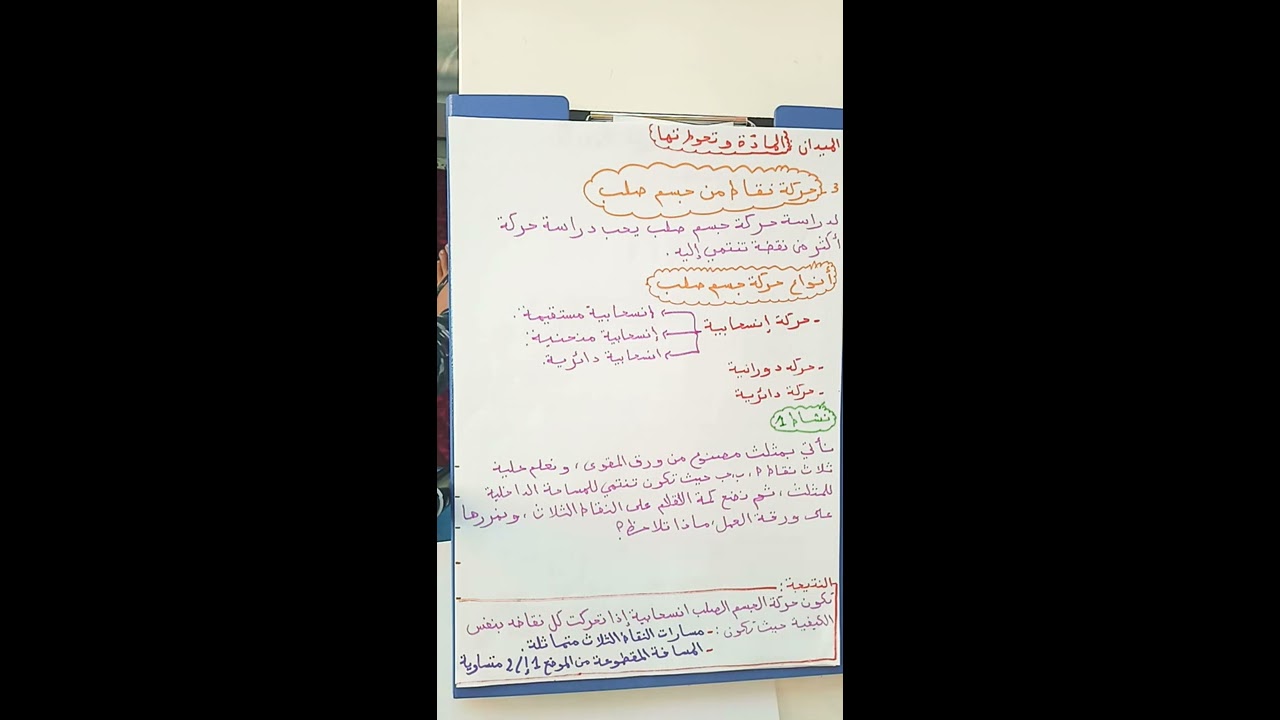 الميدان {المادة و تحولاتها}
3- حركة نقاط من جسم صلب
لدراسة حركة جسم صلب يجب دراسة حركة
أكثر من نقطة تنتمي إليه.
أنواع حركة جسم صلب
- حركة إنسحابية
إنسحابية مستقيمة.
إنسحابية منحنية.
انسحابية دائرية.
- حركة دورانية
- حركة دائرية
نشاط 1
نأتي بمثلث مصنوع من ورق المقوى، و نعلم عليه
ثلاث نقاط أ، ب، ج حيث تكون تنتمي للمساحة الداخلية
للمثلث، ثم نضع الأقلام على النقاط الثلاث، و نمررها
على ورقة العمل، ماذا تلاحظ؟
النتيجة:
تكون حركة الجسم الصلب انسحابية إذا تحركت كل نقاطه بنفس
الكيفية حيث تكون: - مسارات النقاط الثلاث متماثلة.
- المسافة المقطوعة من الموضع 1 إلى 2 متساوية